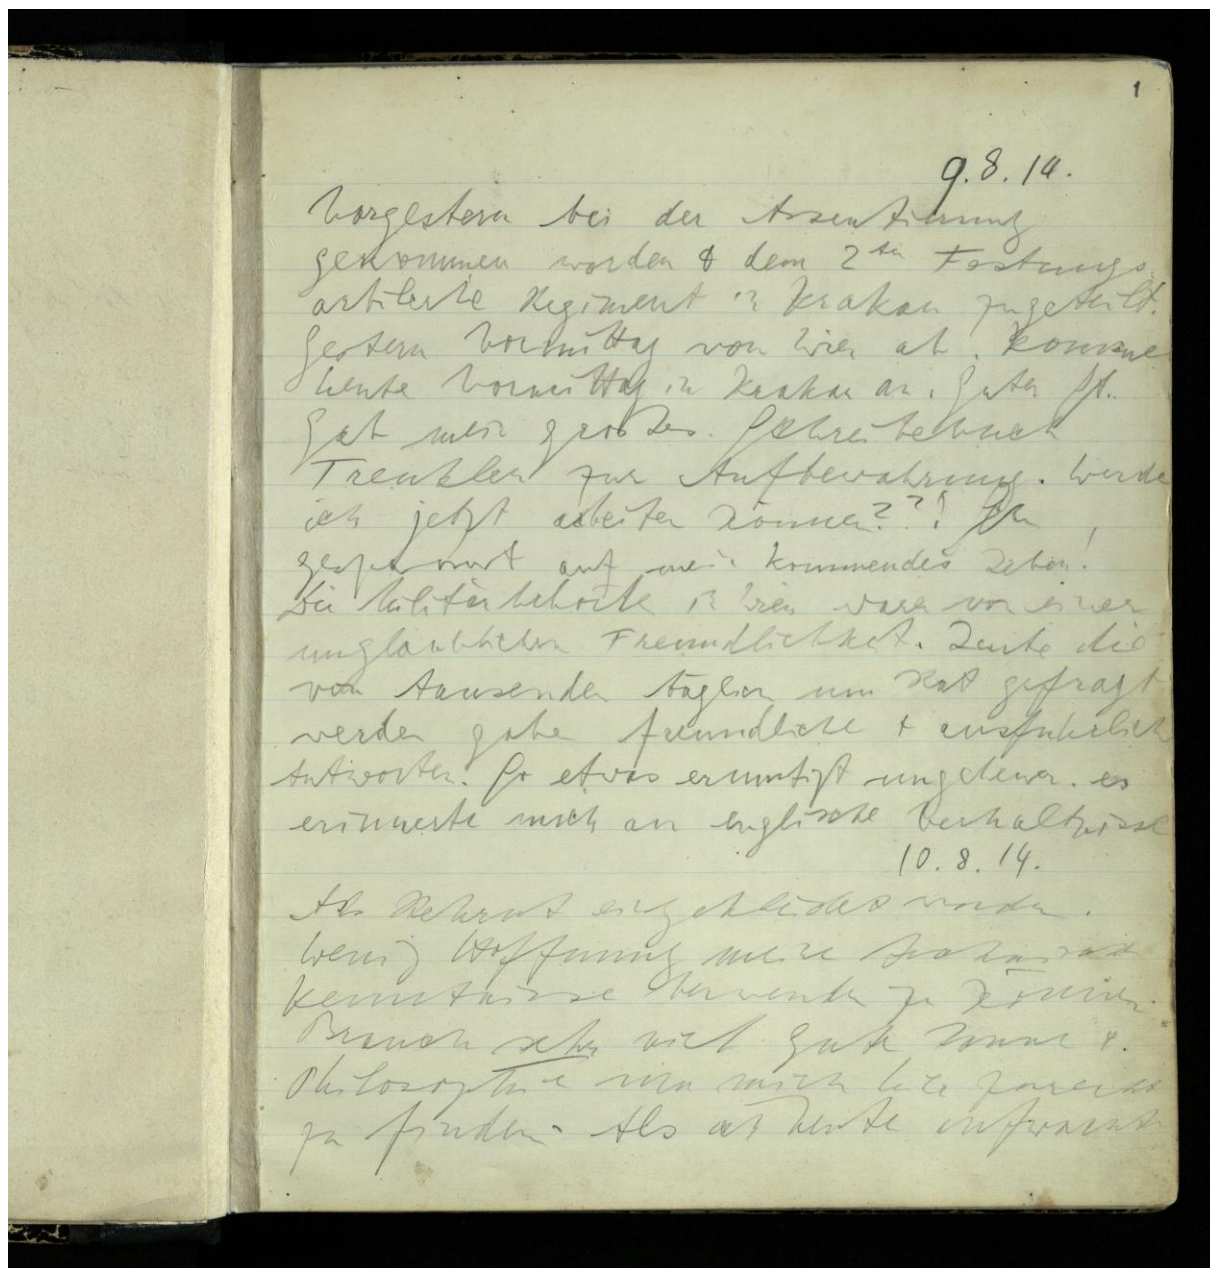 1
9.8.14.
Vorgestern bei der Assentierung
genommen worden & dem 2ten Festungs-
artillerie Regiment in Krakau zugeteilt.
Gestern Vormittag von Wien ab. Komme
heute Vormittag in Krakau an. Guter St.
Gab mein großes Schreibebuch
Trenkler zur Aufbewahrung. Werde
ich jetzt arbeiten können??! Bin
gespannt auf mein kommendes Leben!
Die Militärbehörde in Wien waren von einer
unglaublichen Freundlichkeit. Leute die
von tausenden täglich um Rat gefragt
werden gaben freundliche & ausführliche
Antworten. So etwas ermutigt ungeheuer. es
erinnerte mich an englische Verhältnisse
10.8.14.
Als Rekrut eingekleidet worden.
Wenig Hoffnung meine technischen
Kenntnisse verwenden zu können.
Brauch sehr viel gute Laune &
Philosophie um mich hier zurecht
zu finden. Als ich heute aufwachte